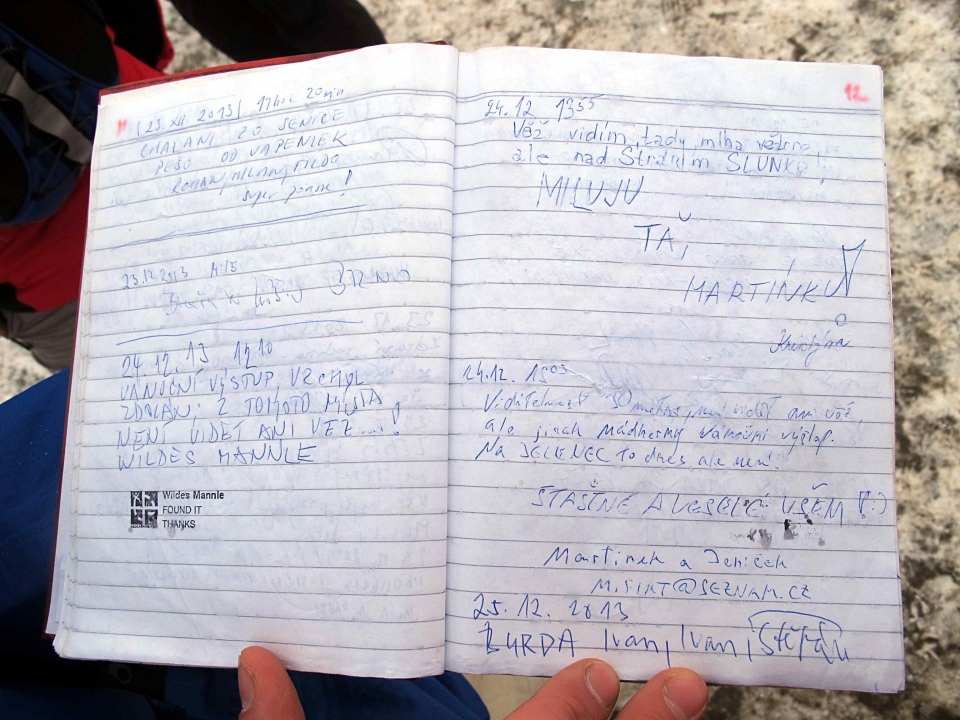 11
23. XII. 2013 | 11 hod. 20 min
CHALANI ZO SENICE
PEŠO OD VAPENIEK
ROMAN, MILAN, FILDO
super
23.12.2013
BRNO
24.12.13 12 10
VÁNOČNÍ VÝSTUP, VRCHOL
ZDOLÁN, Z TOHOTO MÍSTA
NENÍ VIDĚT ANI VĚŽ....!
WILDES MANNLE
Wildes Mannle
FOUND IT
THANKS
12
24.12 13 55
Věž vidím, tady mlha větrno,
ale nad Strání SLUNKO!
MILUJU
TĚ,
MARTÍNKU
Kristýna
24.12. 15 05
Viditelnost 30 metrů, není vidět ani věž,
ale jinak nádherný vánoční výšlap.
Na JELENEC to dnes ale není.
ŠŤASTNÉ A VESELÉ VŠEM !:)
Martínek a Jeníček
M.FIRT@SEZNAM.CZ
25.12.2013
BURDA Ivan, Ivan, Štěpán